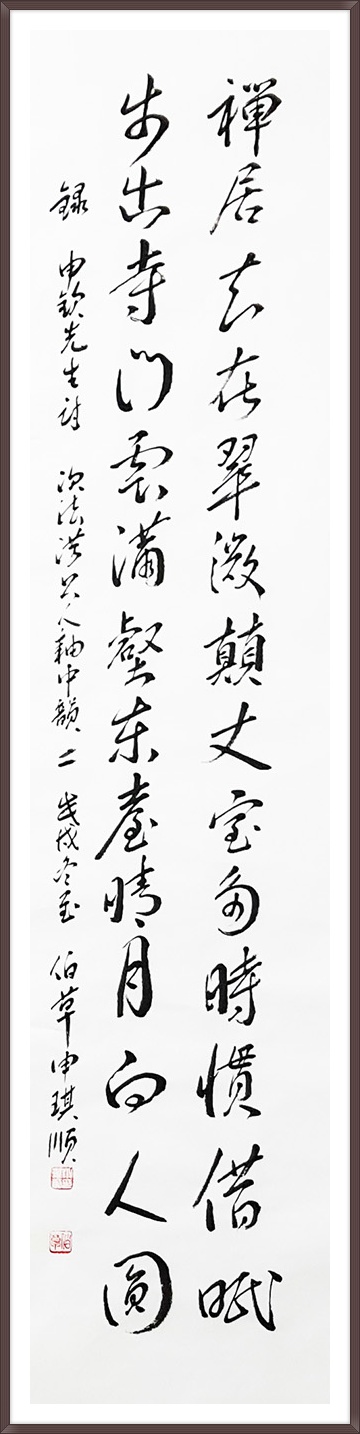 禪居只在翠微顚丈室多時慣借眠
步出寺門雲滿壑東臺晴月向人圓
録 申欽先生詩 次法洪上人軸中韻 二 戊戌冬至 伯草申琪順